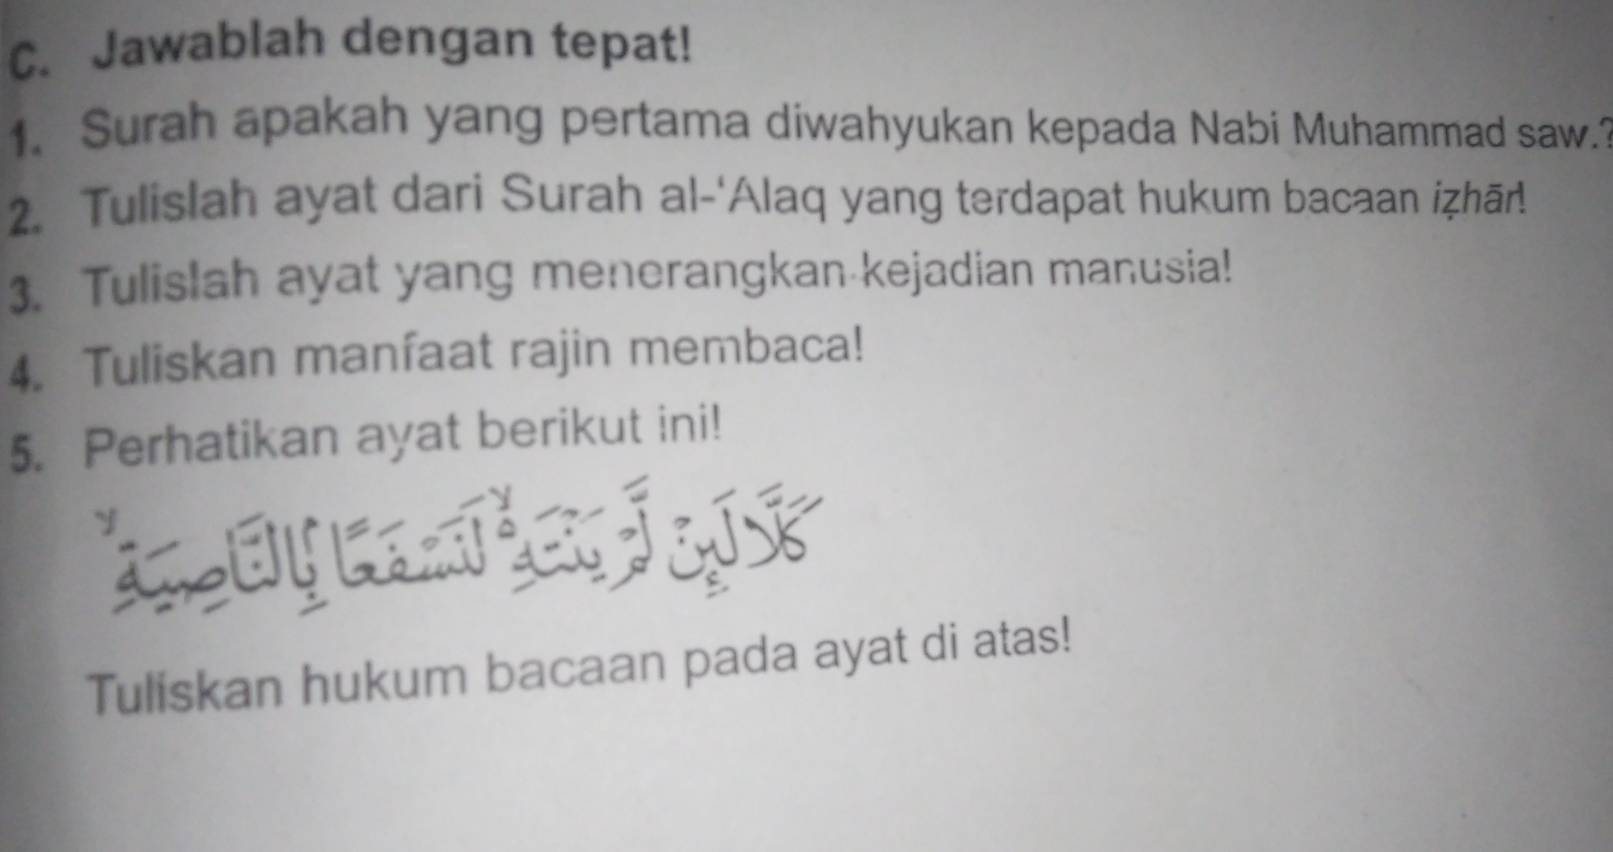 C. Jawablah dengan tepat!
1. Surah apakah yang pertama diwahyukan kepada Nabi Muhammad saw.?
2. Tulislah ayat dari Surah al-‘Alaq yang terdapat hukum bacaan iẓhār!
3. Tulislah ayat yang menerangkan kejadian manusia!
4. Tuliskan manfaat rajin membaca!
5. Perhatikan ayat berikut ini!
كَلَّا لَئِنْ لَّمْ يَنْتَهِ ەۙ لَنَسْفَعًاۢ بِالنَّاصِيَةِۙ
Tuliskan hukum bacaan pada ayat di atas!